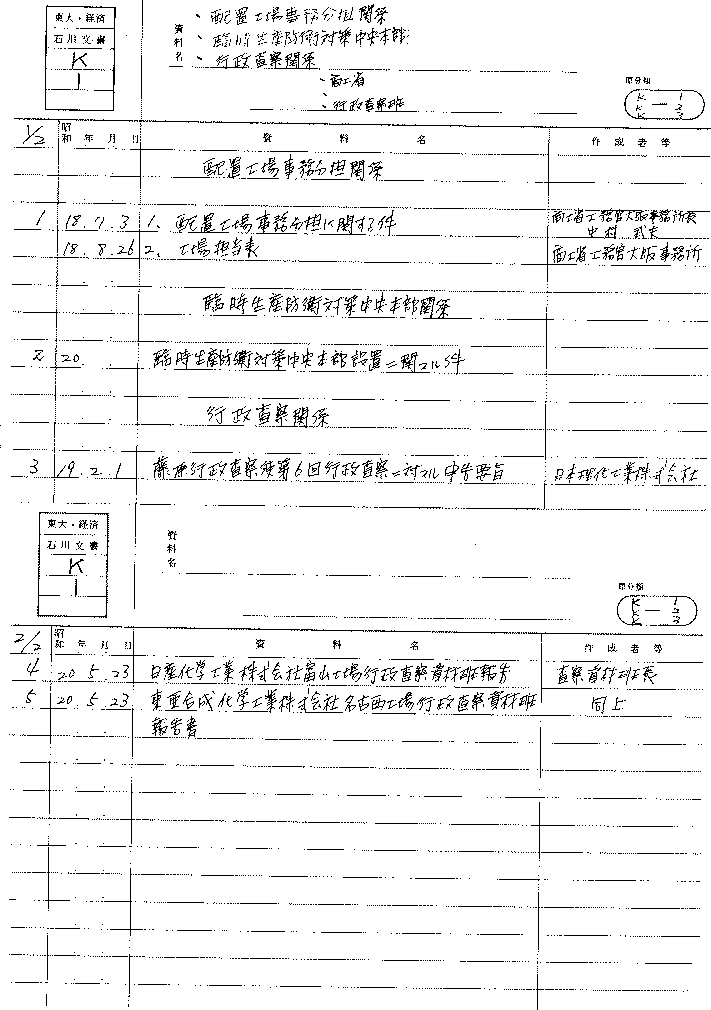 東大・経済
石川文書
K
1
資料名
、配置工場事務分担関係
、臨時生産防衛対策中央本部
、行政査察関係
、商工省
、行政査察班
原分類
K
K — 1
K 2
3
1/2
昭和 年 月 日 資料名 作成者等
配置工場事務分担関係
1 18.7.3 1、配置工場事務分担ニ関スル件 商工省工務官大阪事務所長
中村
18.8.26 2、工場担当表 商工省工務官大阪事務所
臨時生産防衛対策中央本部関係
2 20. 臨時生産防衛対策中央本部設置ニ関スル件
行政査察関係
3 19.2.1 藤原行政査察使第6回行政査察ニ対スル申告要旨 日本理化工業株式会社
東大・経済
石川文書
K
1
資料名
原分類
K
K — 1
K 2
3
2/2
昭和 年 月 日 資料名 作成者等
4 20.5.23 日産化学工業株式会社富山工場行政査察資材班報告 査察資材班長
5 20.5.23 東亜合成化学工業株式会社名古西工場行政査察資材班 同上
報告書